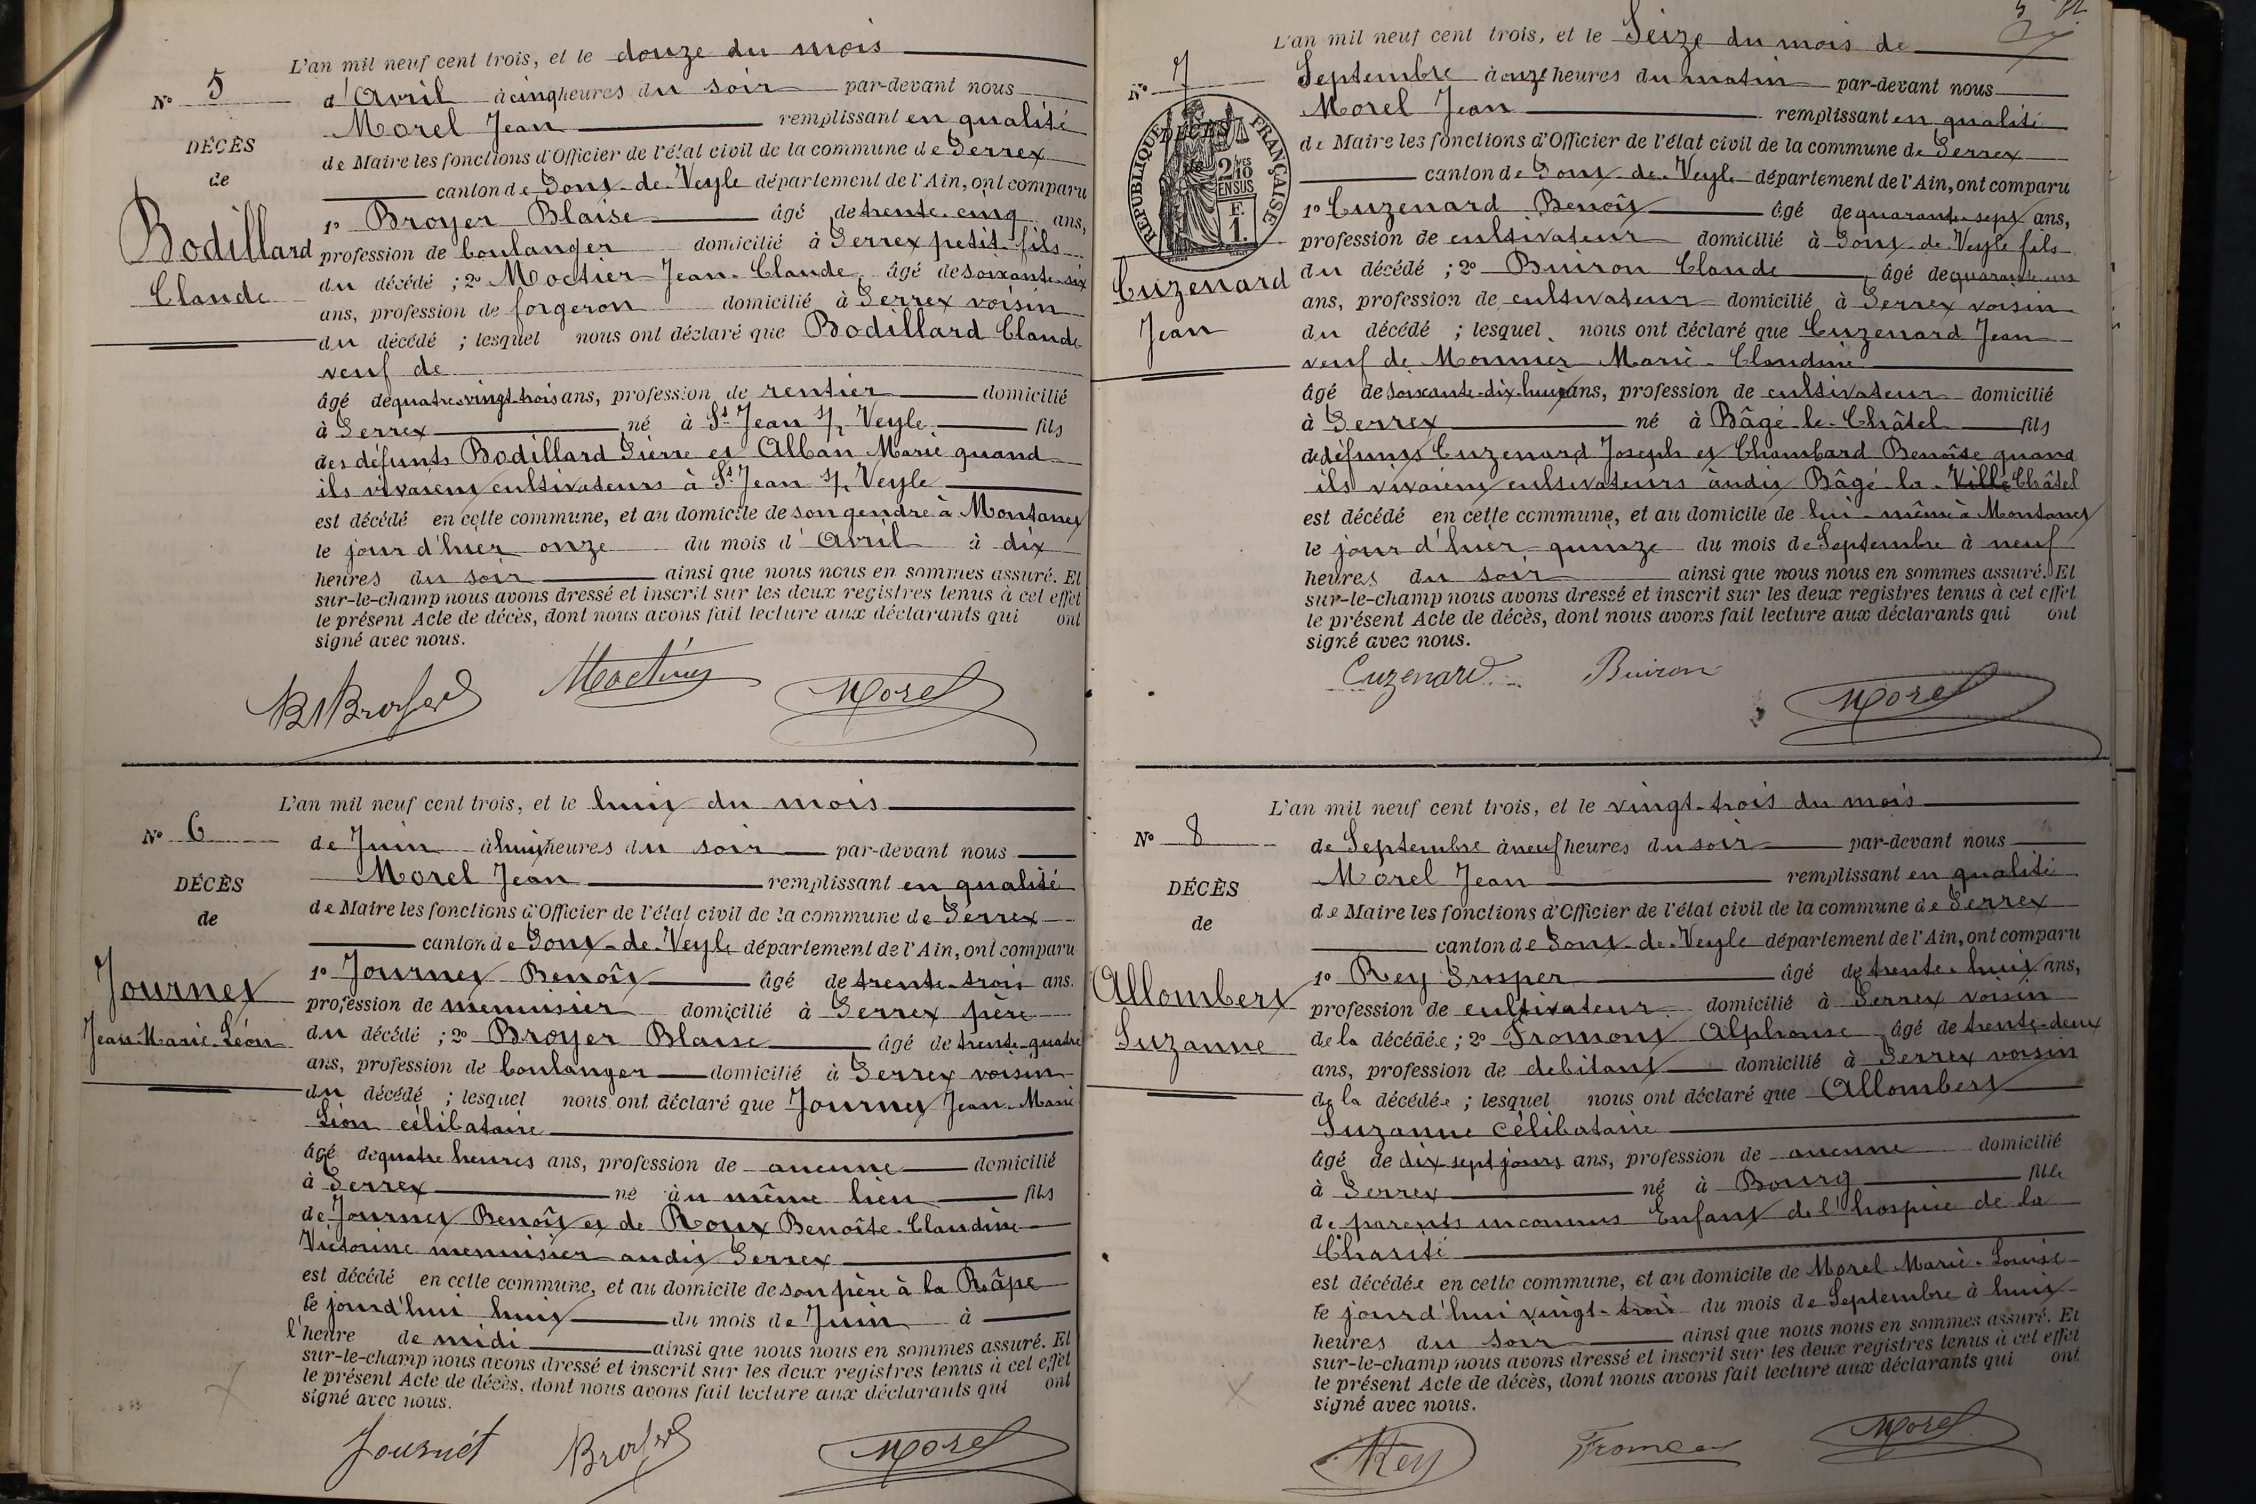 L'an mil neuf cent trois, et le douze du mois
N° 5
d'Avril à cinq heures du soir par-devant nous
Morel Jean remplissant en qualité
DÉCÈS
de Maire les fonctions d'Officier de l'état civil de la commune de Perrex
de
canton de Pont-de-Veyle département de l'Ain, ont comparu
1° Broyer Blaise âgé de trente-cinq ans,
Bodillard
profession de boulanger domicilié à Perrex petit-fils
du décédé ; 2° Moctier Jean-Claude âgé de soixante-six
Claude
ans, profession de forgeron domicilié à Perrex voisin
du décédé ; lesquel nous ont déclaré que Bodillard Claude
veuf de
âgé de quatre-vingt-trois ans, profession de rentier domicilié
à Perrex né à St Jean s/ Veyle fils
des défunts Bodillard Pierre et Alban Marie quand
ils vivaient cultivateurs à St Jean s/ Veyle
est décédé en cette commune, et au domicile de son gendre à Montanet
le jour d'hier onze du mois d'Avril à dix
heures du soir ainsi que nous nous en sommes assuré. Et
sur-le-champ nous avons dressé et inscrit sur les deux registres tenus à cet effet
le présent Acte de décès, dont nous avons fait lecture aux déclarants qui ont
signé avec nous.
Morel
L'an mil neuf cent trois, et le huit du mois
N° 6
de Juin à huit heures du soir par-devant nous
Morel Jean remplissant en qualité
DÉCÈS
de Maire les fonctions d'Officier de l'état civil de la commune de Perrex
de
canton de Pont-de-Veyle département de l'Ain, ont comparu
1° Journet Benoît âgé de trente-trois ans.
Journet
profession de menuisier domicilié à Perrex père
Jean-Marie-Léon
du décédé ; 2° Broyer Blaise âgé de trente-quatre
ans, profession de boulanger domicilié à Perrex voisin
du décédé ; lesquel nous ont déclaré que Journet Jean-Marie
Léon célibataire
âgé de quatre heures ans, profession de aucune domicilié
à Perrex né au même lieu fils
de Journet Benoît et de Roux Benoîte-Claudine
Victorine menuisier audit Perrex
est décédé en cette commune, et au domicile de son père à la Râpe
le jourd'hui huit du mois de Juin à
l'heure de midi ainsi que nous nous en sommes assuré. Et
sur-le-champ nous avons dressé et inscrit sur les deux registres tenus à cet effet
le présent Acte de décès, dont nous avons fait lecture aux déclarants qui ont
signé avec nous.
Journet Morel
L'an mil neuf cent trois, et le Seize du mois de
N° 7
Septembre à onze heures du matin par-devant nous
Morel Jean remplissant en qualité
DÉCÈS
de
RÉPUBLIQUE FRANÇAISE
2/10 EN SUS
F. 1.
de Maire les fonctions d'Officier de l'état civil de la commune de Perrex
canton de Pont-de-Veyle département de l'Ain, ont comparu
1° Cuzenard Benoît âgé de quarante-sept ans,
profession de cultivateur domicilié à Pont-de-Veyle fils
Cuzenard
du décédé ; 2° Buiron Claude âgé de quarante-un
ans, profession de cultivateur domicilié à Perrex voisin
Jean
du décédé ; lesquel nous ont déclaré que Cuzenard Jean
veuf de Monnier Marie-Claudine
âgé de soixante-dix-huit ans, profession de cultivateur domicilié
à Perrex né à Bâgé-le-Châtel fils
de défunts Cuzenard Joseph et Chambard Benoîte quand
ils vivaient cultivateurs audit Bâgé-la-Ville Châtel
est décédé en cette commune, et au domicile de lui-même à Montanet
le jour d'hier quinze du mois de Septembre à neuf
heures du soir ainsi que nous nous en sommes assuré. Et
sur-le-champ nous avons dressé et inscrit sur les deux registres tenus à cet effet
le présent Acte de décès, dont nous avons fait lecture aux déclarants qui ont
signé avec nous.
Cuzenard Buiron Morel
L'an mil neuf cent trois, et le vingt-trois du mois
N° 8
de Septembre à neuf heures du soir par-devant nous
Morel Jean remplissant en qualité
DÉCÈS
de Maire les fonctions d'Officier de l'état civil de la commune de Perrex
de
canton de Pont-de-Veyle département de l'Ain, ont comparu
1° Rey Prosper âgé de trente-huit ans,
Allombert
profession de cultivateur domicilié à Perrex voisin
Suzanne
de la décédée ; 2° Fromont Alphonse âgé de trente-deux
ans, profession de débitant domicilié à Perrex voisin
de la décédée ; lesquel nous ont déclaré que Allombert
Suzanne célibataire
âgé de dix sept jours ans, profession de aucune domicilié
à Perrex né à Bourg fille
de parents inconnus Enfant de l'hospice de la
Charité
est décédée en cette commune, et au domicile de Morel Marie-Louise
le jourd'hui vingt-trois du mois de Septembre à huit
heures du soir ainsi que nous nous en sommes assuré. Et
sur-le-champ nous avons dressé et inscrit sur les deux registres tenus à cet effet
le présent Acte de décès, dont nous avons fait lecture aux déclarants qui ont
signé avec nous.
Rey Morel